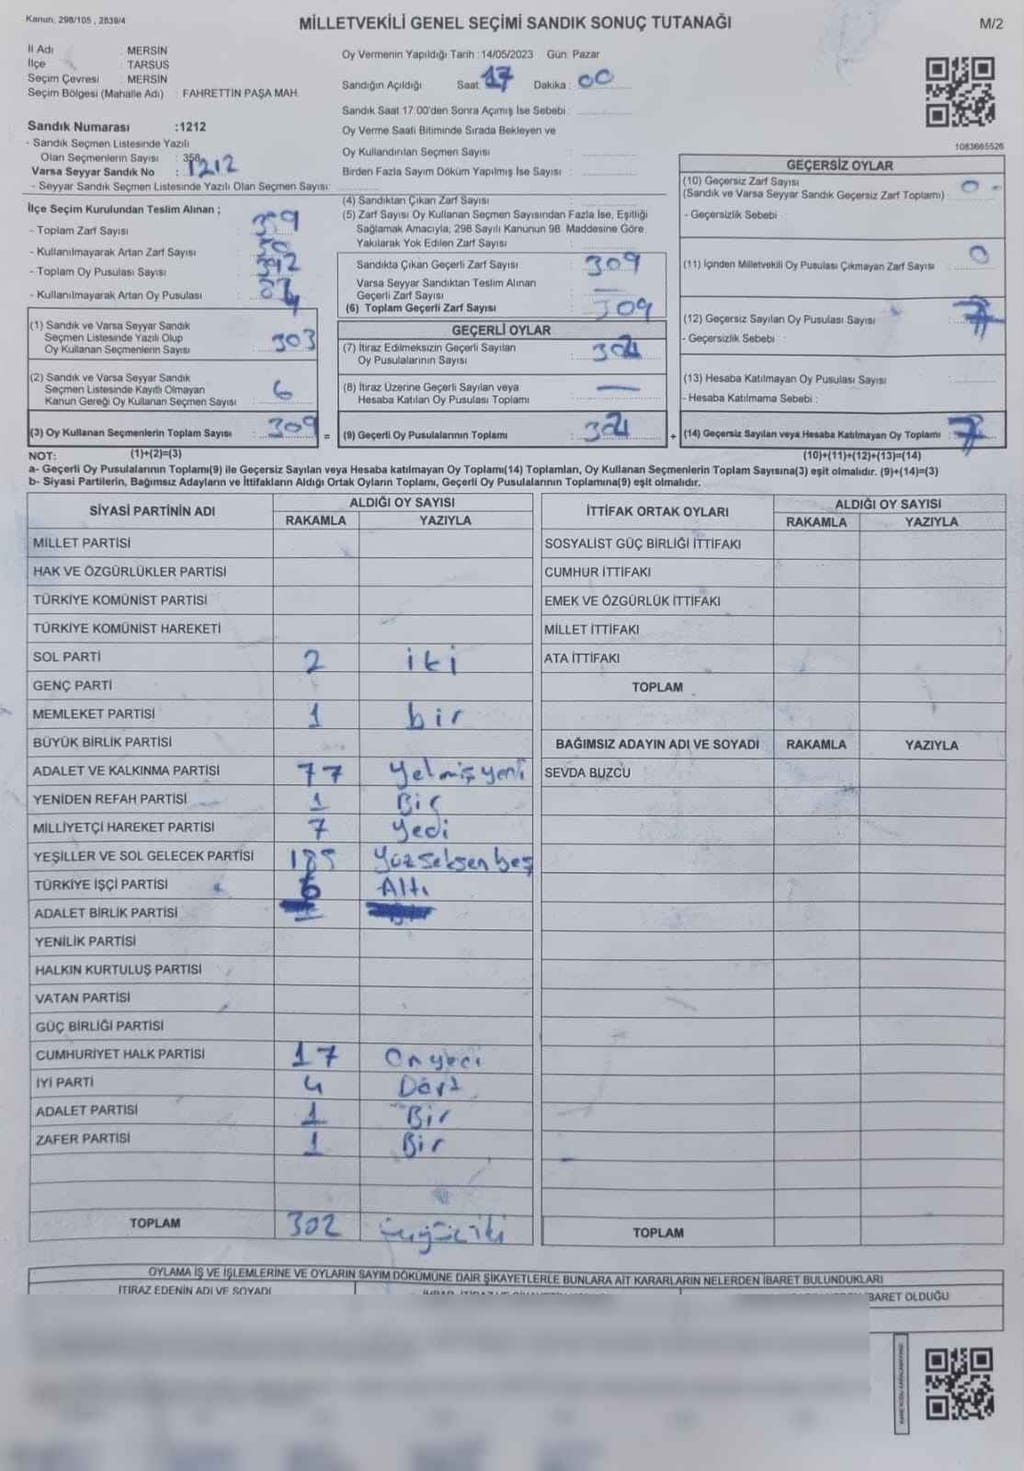 Kanun, 298/105, 2839/4
MİLLETVEKİLİ GENEL SEÇİMİ SANDIK SONUÇ TUTANAĞI
M/2
İl Adı : MERSİN
İlçe : TARSUS
Seçim Çevresi : MERSİN
Seçim Bölgesi (Mahalle Adı) : FAHRETTİN PAŞA MAH.
Oy Vermenin Yapıldığı Tarih : 14/05/2023 Gün: Pazar
Sandığın Açıldığı Saat: 17 Dakika : 00
Sandık Saat 17:00'den Sonra Açımış İse Sebebi :
Sandık Numarası :1212
- Sandık Seçmen Listesinde Yazılı
Olan Seçmenlerin Sayısı : 358
Varsa Seyyar Sandık No : 1212
- Seyyar Sandık Seçmen Listesinde Yazılı Olan Seçmen Sayısı:
Oy Verme Saati Bitiminde Sırada Bekleyen ve
Oy Kullandırılan Seçmen Sayısı :
Birden Fazla Sayım Döküm Yapılmış İse Sayısı :
1083665526
İlçe Seçim Kurulundan Teslim Alınan ;
- Toplam Zarf Sayısı :
- Kullanılmayarak Artan Zarf Sayısı :
- Toplam Oy Pusulası Sayısı :
- Kullanılmayarak Artan Oy Pusulası :
(1) Sandık ve Varsa Seyyar Sandık
Seçmen Listesinde Yazılı Olup
Oy Kullanan Seçmenlerin Sayısı : 303
(2) Sandık ve Varsa Seyyar Sandık
Seçmen Listesinde Kayıtlı Olmayan
Kanun Gereği Oy Kullanan Seçmen Sayısı : 6
(3) Oy Kullanan Seçmenlerin Toplam Sayısı : 309
(4) Sandıktan Çıkan Zarf Sayısı :
(5) Zarf Sayısı Oy Kullanan Seçmen Sayısından Fazla İse, Eşitliği
Sağlamak Amacıyla, 298 Sayılı Kanunun 98. Maddesine Göre
Yakılarak Yok Edilen Zarf Sayısı :
Sandıkta Çıkan Geçerli Zarf Sayısı : 309
Varsa Seyyar Sandıktan Teslim Alınan
Geçerli Zarf Sayısı : —
(6) Toplam Geçerli Zarf Sayısı : 309
GEÇERLİ OYLAR
(7) İtiraz Edilmeksizin Geçerli Sayılan
Oy Pusulalarının Sayısı :
(8) İtiraz Üzerine Geçerli Sayılan veya
Hesaba Katılan Oy Pusulası Toplamı : —
= (9) Geçerli Oy Pusulalarının Toplamı :
GEÇERSİZ OYLAR
(10) Geçersiz Zarf Sayısı
(Sandık ve Varsa Seyyar Sandık Geçersiz Zarf Toplamı) : 0 -
- Geçersizlik Sebebi :
(11) İçinden Milletvekili Oy Pusulası Çıkmayan Zarf Sayısı : 0
(12) Geçersiz Sayılan Oy Pusulası Sayısı : 7
- Geçersizlik Sebebi :
(13) Hesaba Katılmayan Oy Pusulası Sayısı :
- Hesaba Katılmama Sebebi :
+ (14) Geçersiz Sayılan veya Hesaba Katılmayan Oy Toplamı : 7
NOT: (1)+(2)=(3)
(10)+(11)+(12)+(13)=(14)
a- Geçerli Oy Pusulalarının Toplamı(9) ile Geçersiz Sayılan veya Hesaba katılmayan Oy Toplamı(14) Toplamları, Oy Kullanan Seçmenlerin Toplam Sayısına(3) eşit olmalıdır. (9)+(14)=(3)
b- Siyasi Partilerin, Bağımsız Adayların ve İttifakların Aldığı Ortak Oyların Toplamı, Geçerli Oy Pusulalarının Toplamına(9) eşit olmalıdır.
SİYASİ PARTİNİN ADI
ALDIĞI OY SAYISI
RAKAMLA YAZIYLA
MİLLET PARTİSİ
HAK VE ÖZGÜRLÜKLER PARTİSİ
TÜRKİYE KOMÜNİST PARTİSİ
TÜRKİYE KOMÜNİST HAREKETİ
SOL PARTİ 2 iki
GENÇ PARTİ
MEMLEKET PARTİSİ 1 bir
BÜYÜK BİRLİK PARTİSİ
ADALET VE KALKINMA PARTİSİ 77 Yetmişyedi
YENİDEN REFAH PARTİSİ 1 Bir
MİLLİYETÇİ HAREKET PARTİSİ 7 Yedi
YEŞİLLER VE SOL GELECEK PARTİSİ 185 Yüzseksenbeş
TÜRKİYE İŞÇİ PARTİSİ 6 Altı
ADALET BİRLİK PARTİSİ
YENİLİK PARTİSİ
HALKIN KURTULUŞ PARTİSİ
VATAN PARTİSİ
GÜÇ BİRLİĞİ PARTİSİ
CUMHURİYET HALK PARTİSİ 17 Onyedi
İYİ PARTİ 4 Dört
ADALET PARTİSİ 1 Bir
ZAFER PARTİSİ 1 Bir
TOPLAM 302 Üçyüziki
İTTİFAK ORTAK OYLARI
ALDIĞI OY SAYISI
RAKAMLA YAZIYLA
SOSYALİST GÜÇ BİRLİĞİ İTTİFAKI
CUMHUR İTTİFAKI
EMEK VE ÖZGÜRLÜK İTTİFAKI
MİLLET İTTİFAKI
ATA İTTİFAKI
TOPLAM
BAĞIMSIZ ADAYIN ADI VE SOYADI RAKAMLA YAZIYLA
SEVDA BUZCU
TOPLAM
OYLAMA İŞ VE İŞLEMLERİNE VE OYLARIN SAYIM DÖKÜMÜNE DAİR ŞİKAYETLERLE BUNLARA AİT KARARLARIN NELERDEN İBARET BULUNDUKLARI
İTİRAZ EDENİN ADI VE SOYADI
BARET OLDUĞU